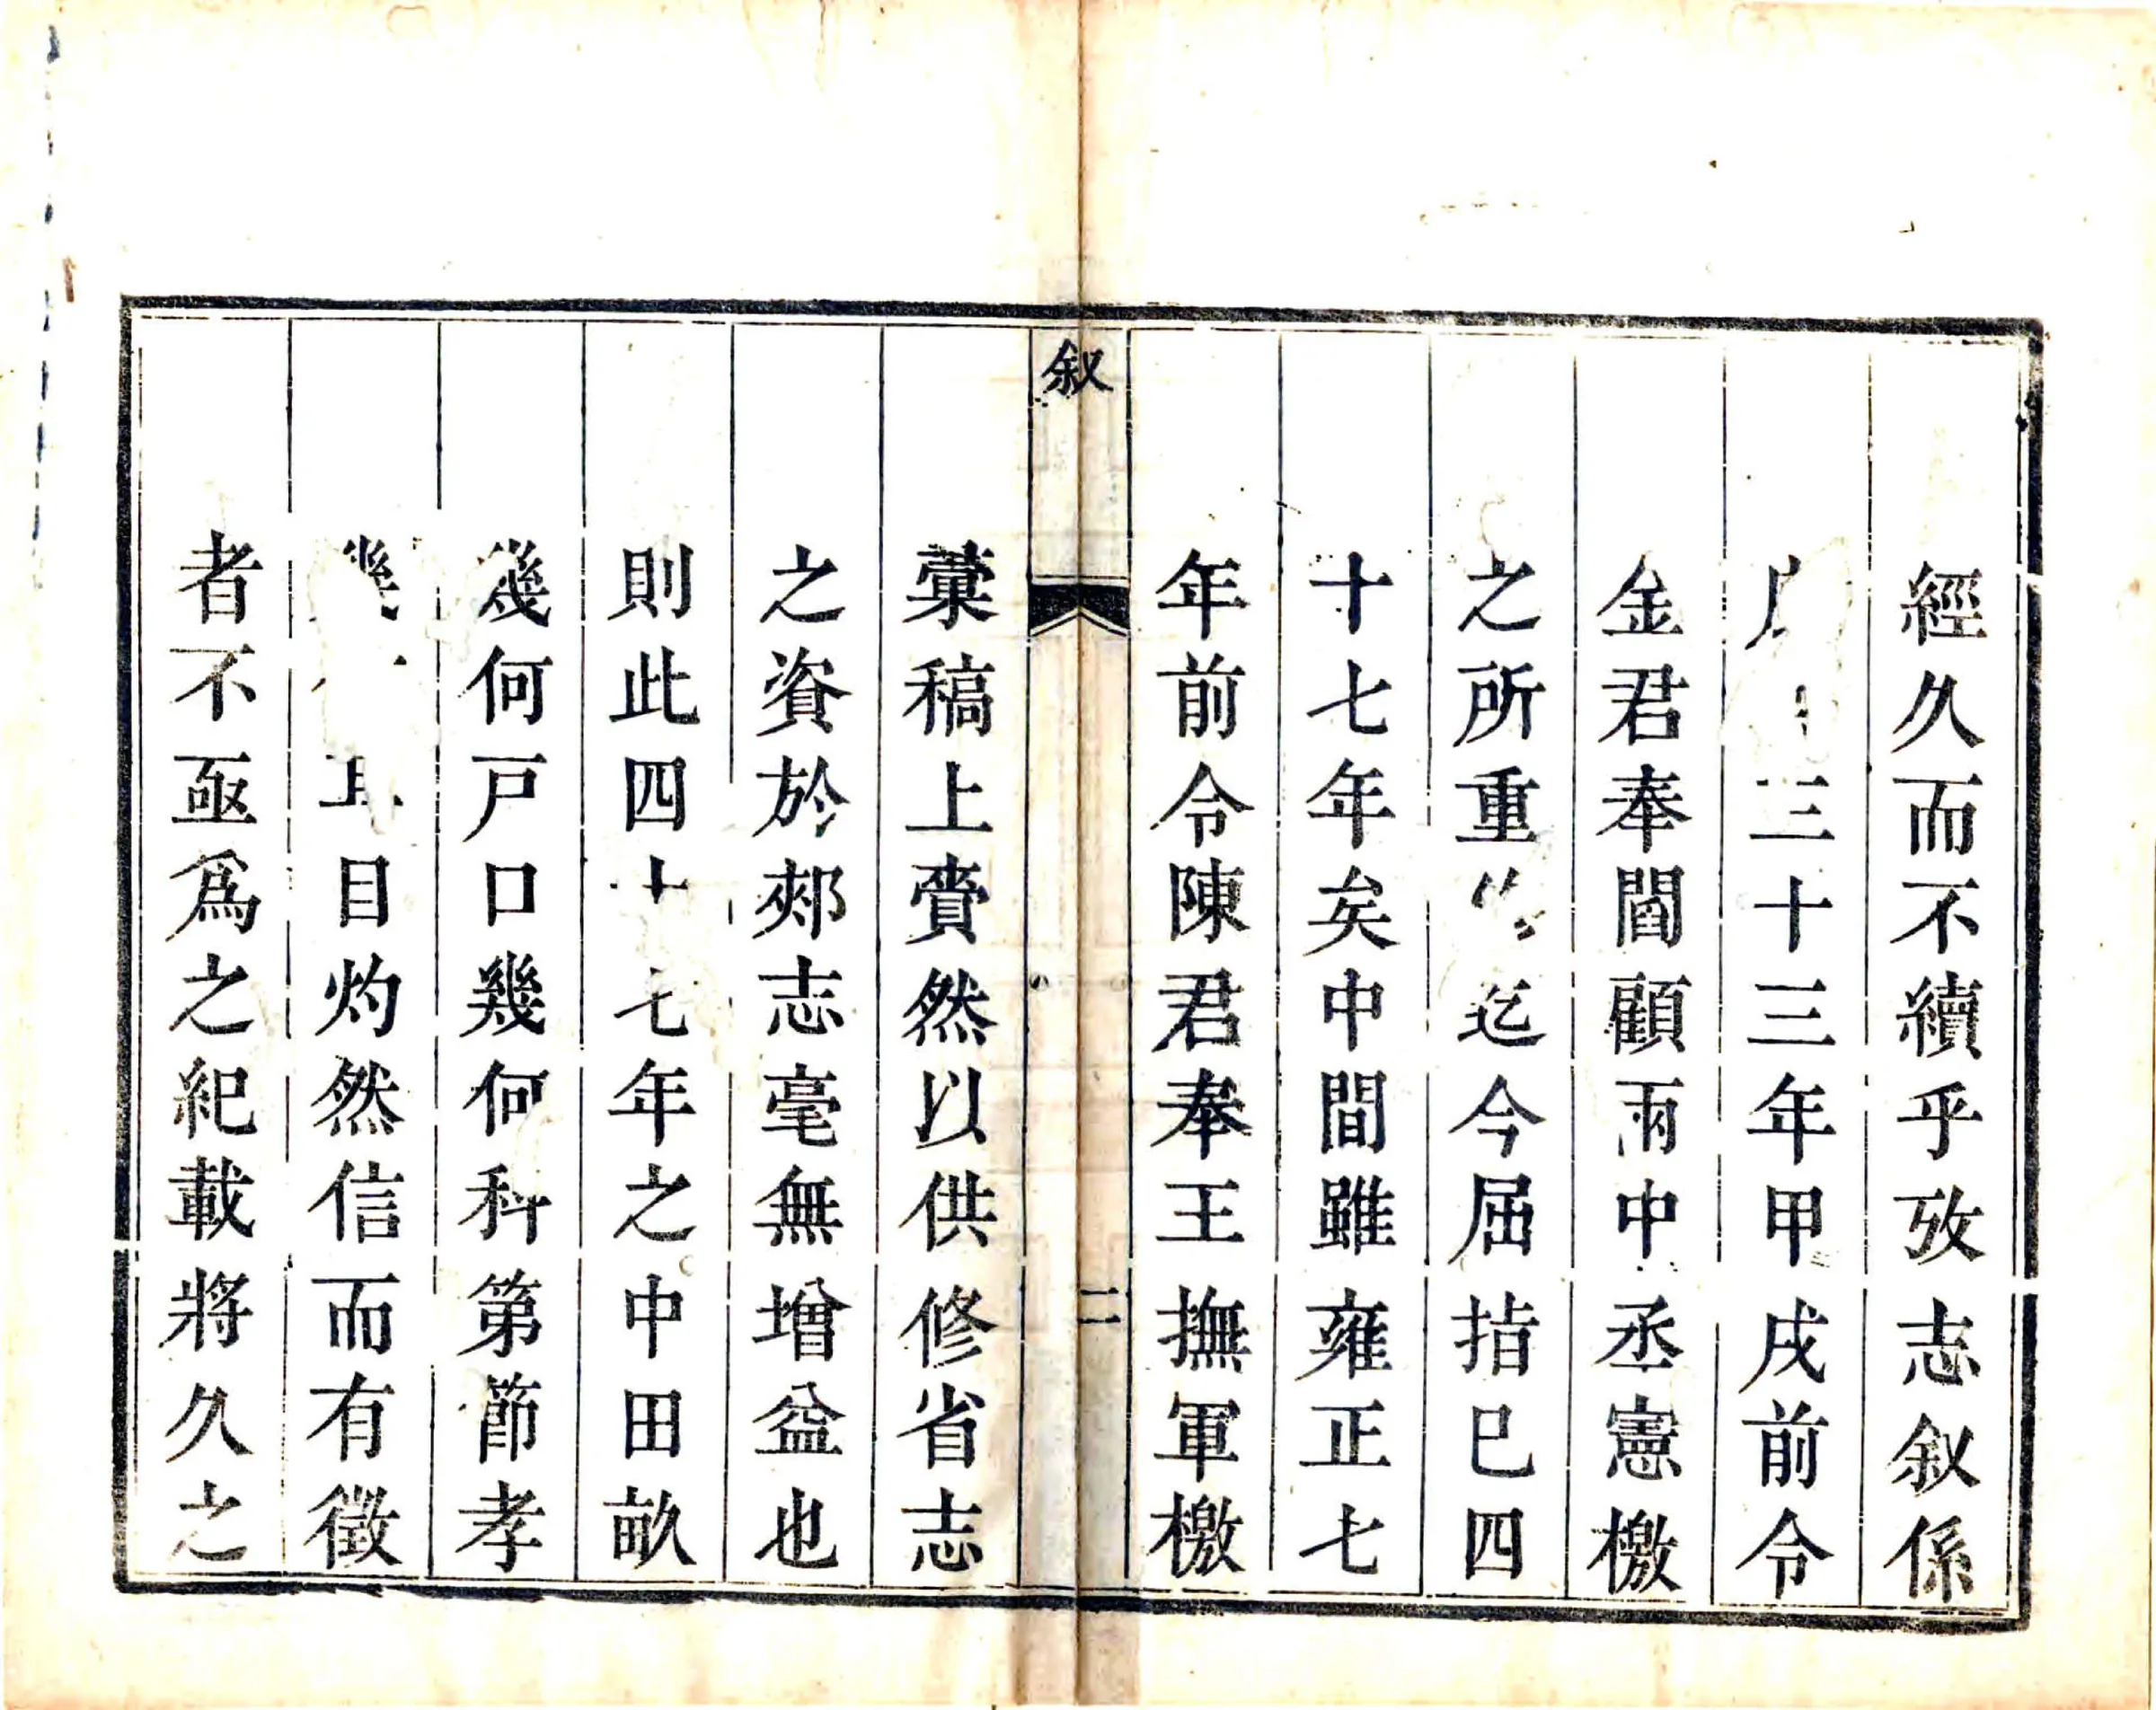 經久而不續乎攷志叙係
三十三年甲戌前令
金君奉閻顧兩中丞憲檄
之所重迄今屈指巳四
十七年矣中間雖雍正七
年前令陳君奉王撫軍檄
叙
二
彚稿上賷然以供修省志
之資於郟志毫無增益也
則此四十七年之中田畝
幾何戸口幾何科第節孝
幾耳目灼然信而有徵
者不亟爲之紀載將久之